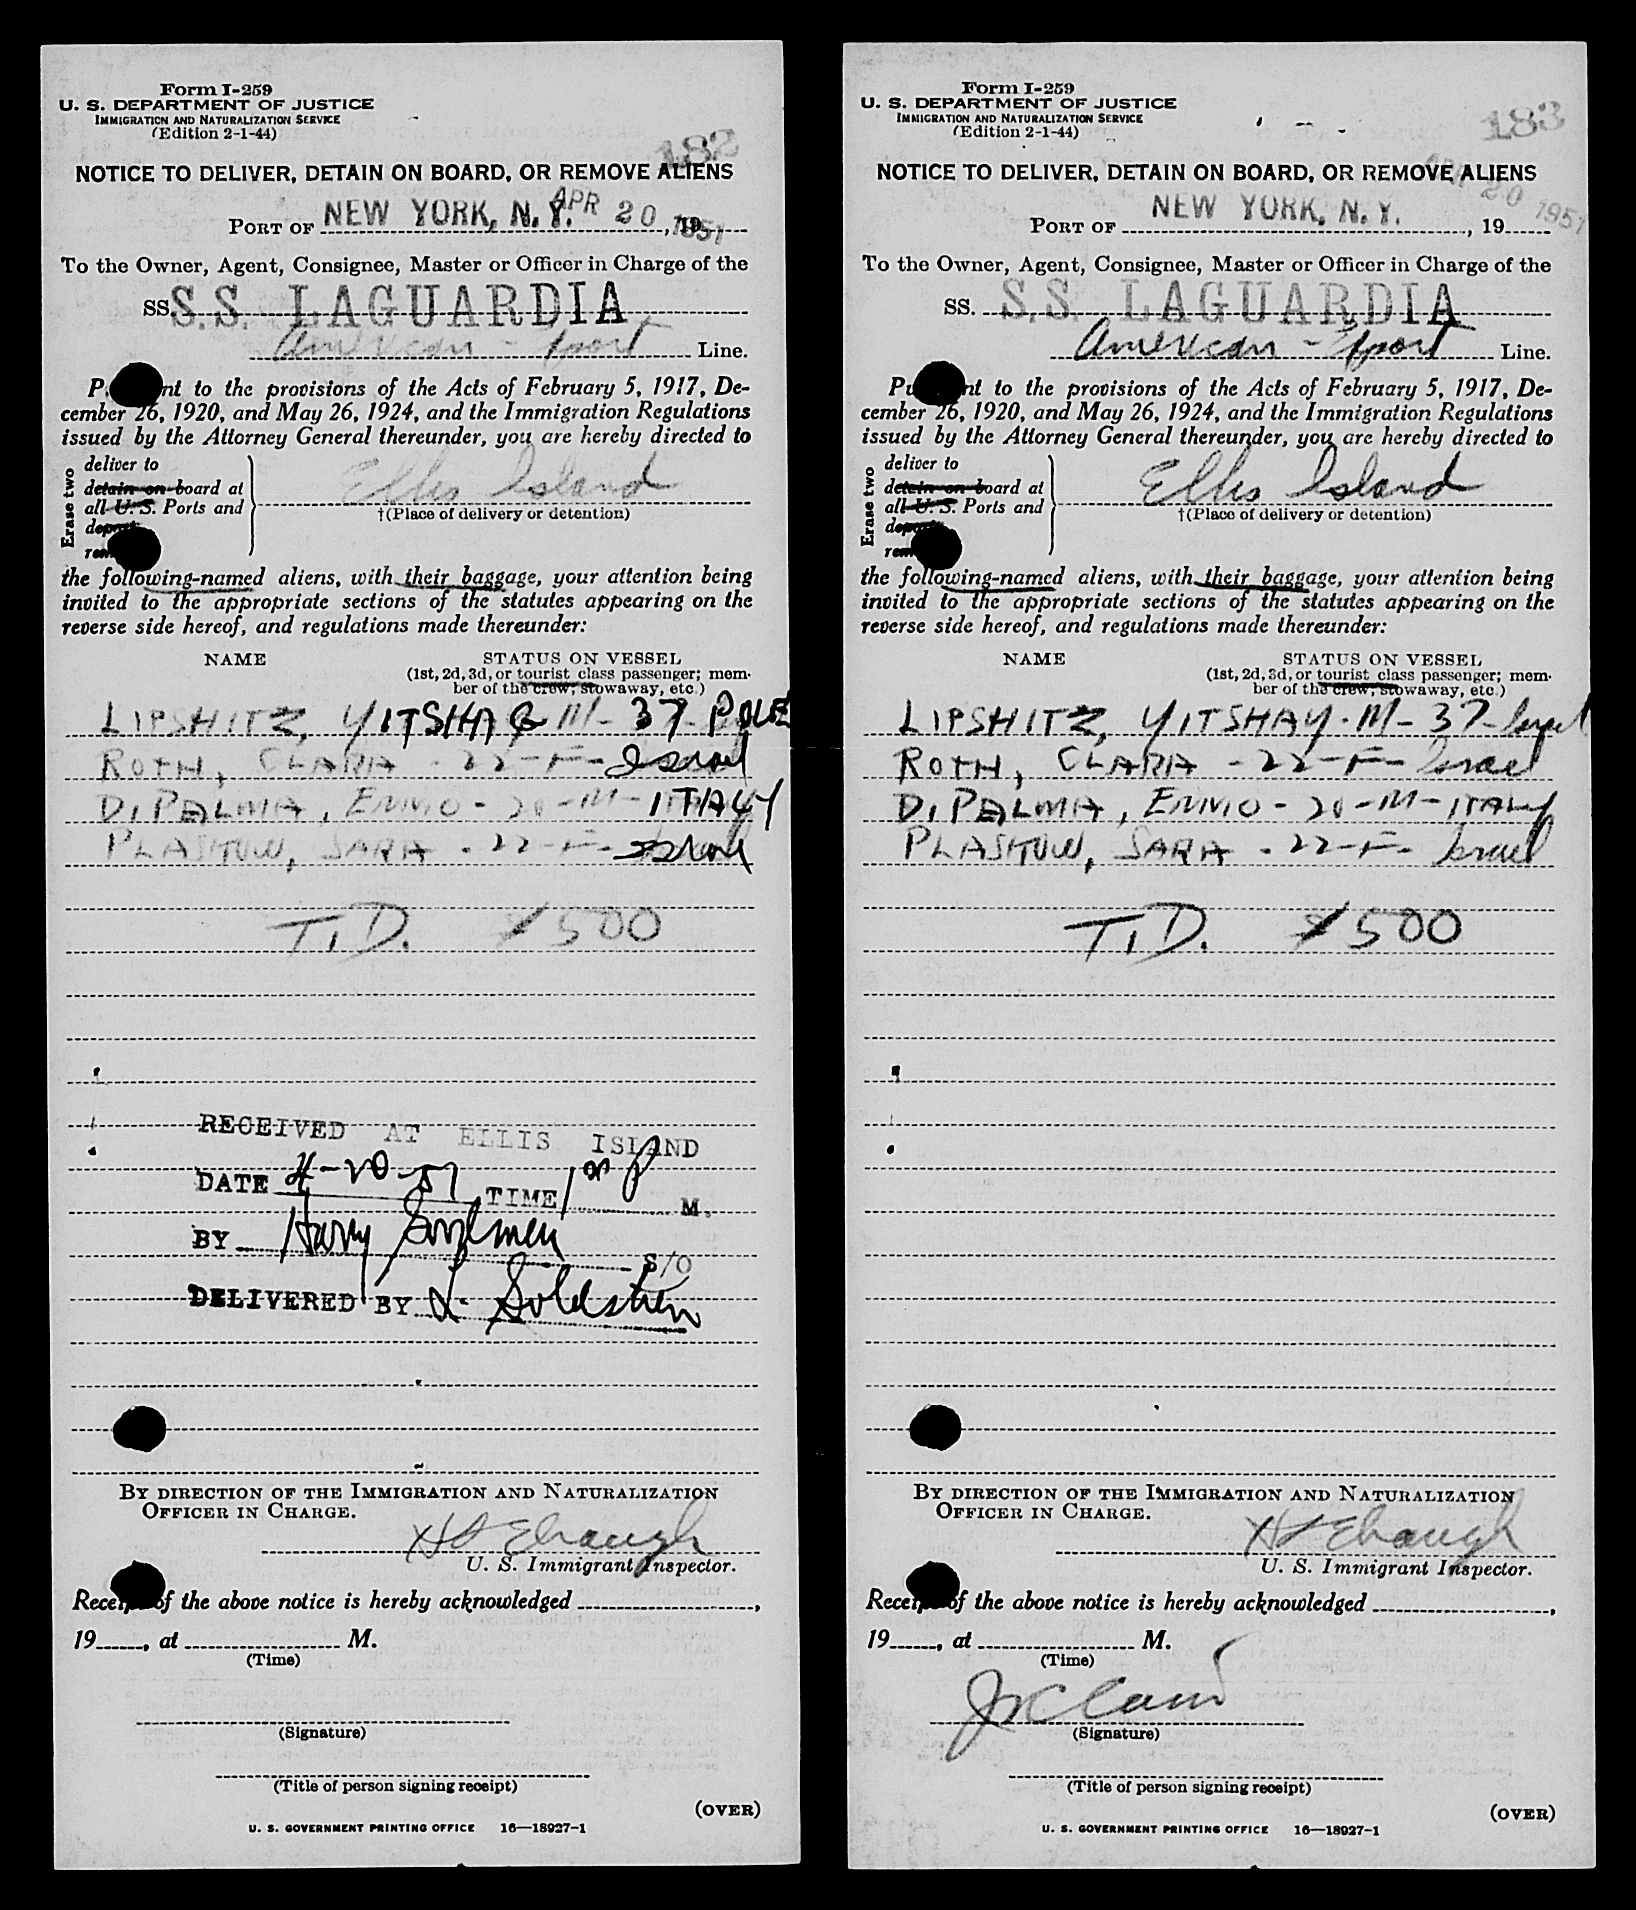 Form I-259
U. S. DEPARTMENT OF JUSTICE
IMMIGRATION AND NATURALIZATION SERVICE
(Edition 2-1-44)
182
NOTICE TO DELIVER, DETAIN ON BOARD, OR REMOVE ALIENS
PORT OF NEW YORK, N. Y. APR 20 1951, 19
To the Owner, Agent, Consignee, Master or Officer in Charge of the
SS. S.S. LAGUARDIA
American - Export Line.
nt to the provisions of the Acts of February 5, 1917, De-
cember 26, 1920, and May 26, 1924, and the Immigration Regulations
issued by the Attorney General thereunder, you are hereby directed to
Erase two
deliver to
detain on board at
all U. S. Ports and
Ellis Island
†(Place of delivery or detention)
the following-named aliens, with their baggage, your attention being
invited to the appropriate sections of the statutes appearing on the
reverse side hereof, and regulations made thereunder:
NAME STATUS ON VESSEL
(1st, 2d, 3d, or tourist class passenger; mem-
ber of the crew, stowaway, etc.)
LIPSHITZ, YITSHAG M - 37 - POLE
ROTH, CLARA - 22 - F - Israel
DI PALMA, ENNIO - 20 - M - ITALY
PLASHTOW, SARA - 22 - F - Israel
T.D. $500
RECEIVED AT ELLIS ISLAND
DATE 4-20-51 TIME 1 P M.
BY Harry S/O
DELIVERED BY L. Goldstein
BY DIRECTION OF THE IMMIGRATION AND NATURALIZATION
OFFICER IN CHARGE.
Ebaugh
U. S. Immigrant Inspector.
Receipt of the above notice is hereby acknowledged ,
19 , at M.
(Time)
(Signature)
(Title of person signing receipt)
(OVER)
U. S. GOVERNMENT PRINTING OFFICE 16—18927-1
Form I-259
U. S. DEPARTMENT OF JUSTICE
IMMIGRATION AND NATURALIZATION SERVICE
(Edition 2-1-44)
183
NOTICE TO DELIVER, DETAIN ON BOARD, OR REMOVE ALIENS
APR 20 1951
PORT OF NEW YORK, N. Y. , 19
To the Owner, Agent, Consignee, Master or Officer in Charge of the
SS. S.S. LAGUARDIA
American - Export Line.
nt to the provisions of the Acts of February 5, 1917, De-
cember 26, 1920, and May 26, 1924, and the Immigration Regulations
issued by the Attorney General thereunder, you are hereby directed to
Erase two
deliver to
detain on board at
all U. S. Ports and
Ellis Island
†(Place of delivery or detention)
the following-named aliens, with their baggage, your attention being
invited to the appropriate sections of the statutes appearing on the
reverse side hereof, and regulations made thereunder:
NAME STATUS ON VESSEL
(1st, 2d, 3d, or tourist class passenger; mem-
ber of the crew, stowaway, etc.)
LIPSHITZ, YITSHAY - M - 37 - Israel
ROTH, CLARA - 22 - F - Israel
DI PALMA, ENNIO - 20 - M - ITALY
PLASHTOW, SARA - 22 - F - Israel
T.D. $500
BY DIRECTION OF THE IMMIGRATION AND NATURALIZATION
OFFICER IN CHARGE.
Ebaugh
U. S. Immigrant Inspector.
Receipt of the above notice is hereby acknowledged ,
19 , at M.
(Time)
(Signature)
(Title of person signing receipt)
(OVER)
U. S. GOVERNMENT PRINTING OFFICE 16—18927-1